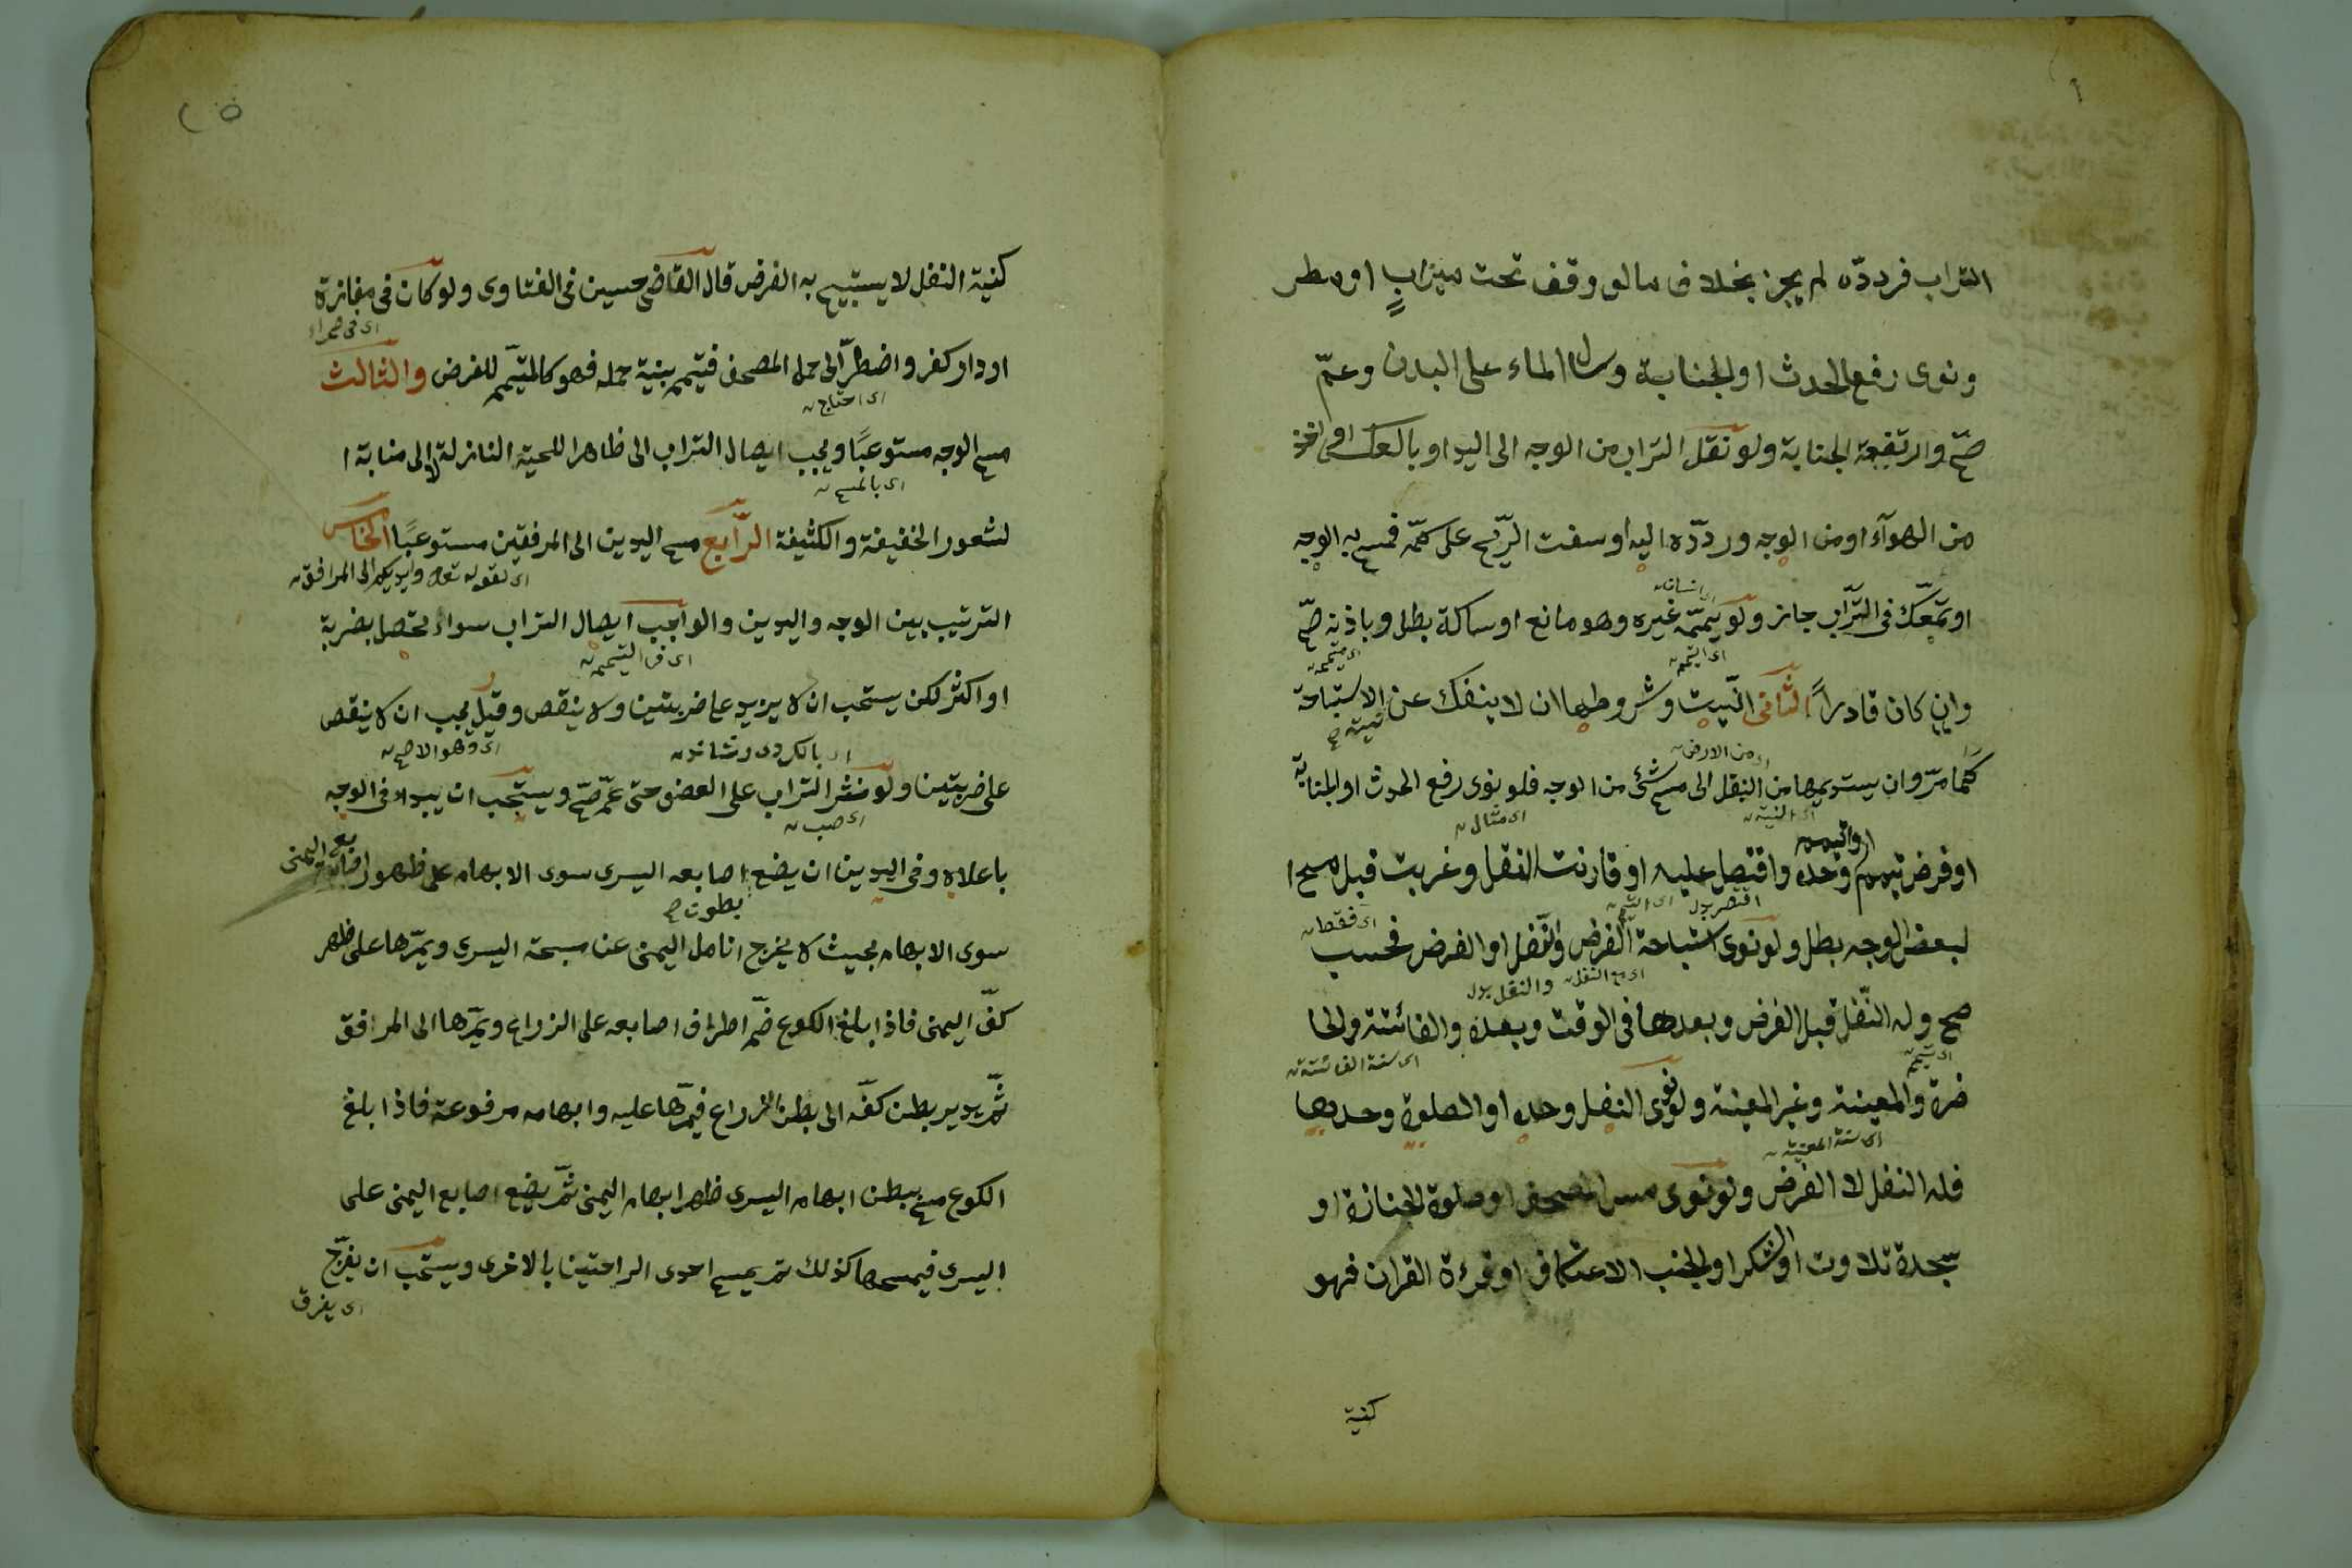 التراب فردده لم يجز بخلاف ما لو وقف تحت ميزاب او مطر
ونوى رفع الحدث او الجنابة وسال الماء على البدن وعمّ
صحّ وارتفعة الجنابة ولو نقل التراب من الوجه الى اليد او بالعكس او اخذ
من الهوآء او من الوجه وردّده اليه او سفت الرّيح على كمّه فمسح به الوجه
او تمعّك فى التّراب جاز ولو يمّمه غيره وهو مانع او ساكة بطل وباذنه صحّ
اى التيمم
وان كان قادراً الثانى النّيت وشروطها ان لا ينفك عن الاستباحة
من الارض
كما مرّ وان يستديمها من النقل الى مسح شئ من الوجه فلو نوى رفع الحدث او الجنابة
اى النية اى مثال
او فرض تيمم وحده واقتصل عليه او قارنت النقل وغربت قبل مسح ا
اقتصر بدل اى التيمم اى فقط
لبعض الوجه بطل ولو نوى استباحة الفرض والنّفل او الفرض فحسب
اى مع النفل والنقل بدل
صح وله النّفل قبل الفرض وبعدها فى الوقت وبعده والفائتة والحا
اى تيمم اى سنة الفائتة
ضرة والمعينة وغير المعينة ولو نوى النفل وحده او الصلوة وحديها
اى سنة المعينة
فله النفل لا الفرض ولو نوى مس المصحف او صلوة الجنازة او
سجدة تلاوت او الشكر او الجنب الاعتكاف او قرءة القران فهو
كنية
كنية النفل لا يستبيح به الفرض قال القاضى حسين فى الفتاوى ولو كان فى مفازة
اى فى صحراء
او دار كفر واضطرّ الى حمل المصحف فتيمم بنية حمله فهو كالمتيمّم للفرض والثالث
اى احتاج
مسح الوجه مستوعبًا ويجب ايصال التراب الى ظاهر اللحية النازلة لا الى منابة ا
اى بالمسح
لشعور الخفيفة والكثيفة الرّابع مسح اليدين الى المرفقين مستوعبًا الخامس
اى لقوله تعالى وايديكم الى المرافق
الترتيب بين الوجه واليدين والواجب ايصال التراب سواء يحصل بضربة
اى فى التيمم
او اكثر لكن يستحب ان لا يزيد على ضربتين ولا ينقص وقيل يجب ان لا ينقص
اى وهو الاصح
على ضربتين ولو نثر التراب على العضو حتى عمّ صحّ ويستحب ان يبداء فى الوجه
اى صب
باعلاه وفى اليدين ان يضع اصابعه اليسرى سوى الابهام على ظهور اصابع اليمنى
بطون صح
سوى الابهام بحيث لا يخرج انامل اليمنى عن مسبحة اليسرى ويمرّها على ظهر
كفّ اليمنى فاذا بلغ الكوع ضمّ اطراف اصابعه على الزراع ويمرّها الى المرافق
ثمّ يدير بطن كفّه الى بطن الزراع فيمرّها عليه وابهامه مرفوعة فاذا بلغ
الكوع مسح ببطن ابهام اليسرى ظهر ابهام اليمنى ثمّ يضع اصابع اليمنى على
اليسرى فيمسحها كذلك ثم يمسح احدى الراحتين بالاخرى ويستحب ان يفرّج
اى يفرق